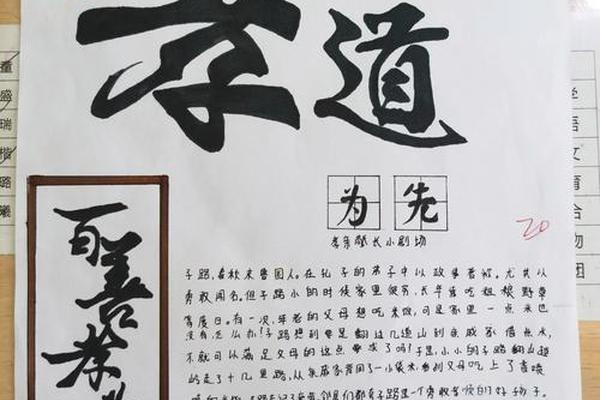 孝道
为先
孝亲敬长小剧场
20
百善孝
子路,春秋末鲁国人。在孔子的弟子中以政事著称。尤其以
勇敢闻名。但子路小的时候家里很穷,长年靠吃粗粮野菜
等度日。有一次,年老的父母想吃米饭,可是家里一点米也
没有,怎么办?子路想到要是翻过几道山到亲戚家借点米,
不就可以满足父母的这点要求了吗?于是,小小的子路翻山越
岭走了十几里路,从亲戚家背回了一小袋米,看到父母吃上了香喷
邻居们都夸子路是一个勇敢孝顺的好孩子。
童
盛
瑞
楷
璐
曦
学
语
文
育
合
物
困